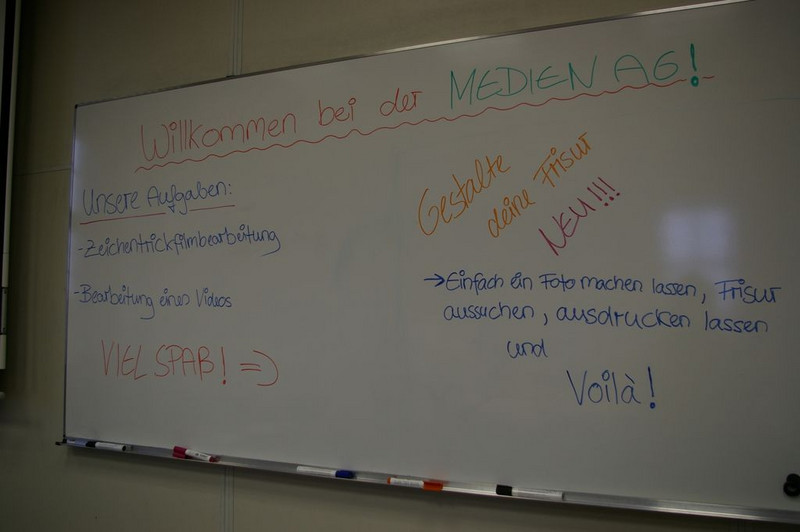 Willkommen bei der MEDIEN AG!
Unsere Aufgaben:
-Zeichentrickfilmbearbeitung
-Bearbeitung eines Videos
VIEL SPAß! =)
Gestalte
deine Frisur
NEU!!!
→Einfach ein Foto machen lassen, Frisur
aussuchen, ausdrucken lassen
und
Voilà!